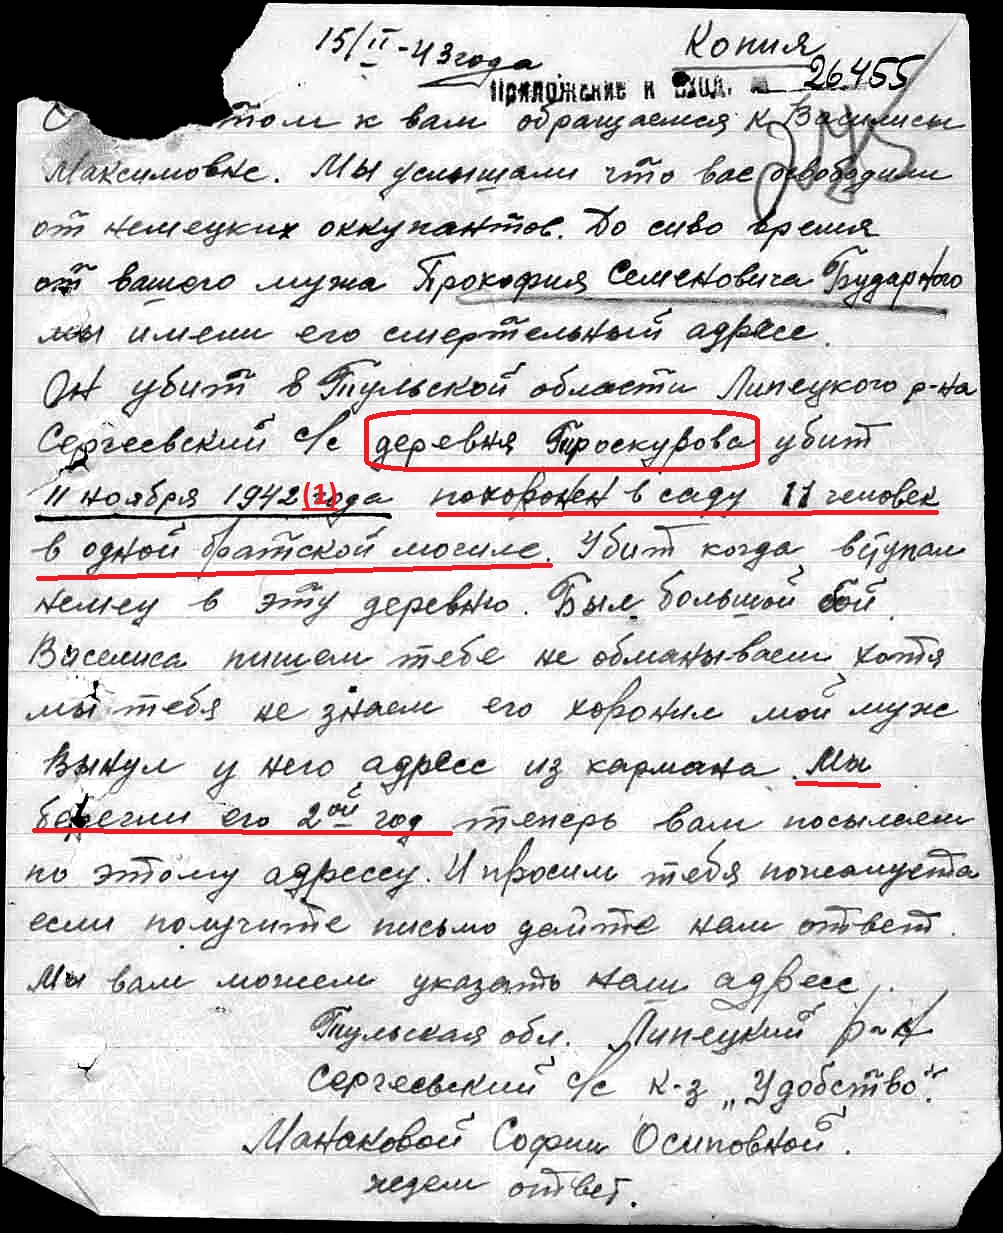 15/II-43 года
Копия
Приложение к вход. № 26455
С том к вам обращаемся к Василисы
Максимовне. Мы услышали что вас освободили
от немецких оккупантов. До сиво время
от вашого мужа Прокофия Семеновича Бударного
мы имели его смертельный адресс.
Он убит в Тульской области Липецкого р-на
Сергеевский с/с деревня Троскурова убит
11 ноября 1942 (1) года похоронен в саду 11 человек
в одной братской могиле. Убит когда вступал
немец в эту деревню. Был большой бой.
Василиса пишем тебе не обманываем хотя
мы тебя не знаем его хоронил мой муж
Вынул у него адресс из кармана. Мы
берегли его 2ой год теперь вам посылаем
по этому адрессу. И просим тебя пожалуста
если получите письмо дайте нам ответ.
Мы вам можем указать наш адресс.
Тульская обл. Липецкий р-н
Сергеевский с/с к-з „Удобство".
Манаковой Софии Осиповной.
ждем ответ.